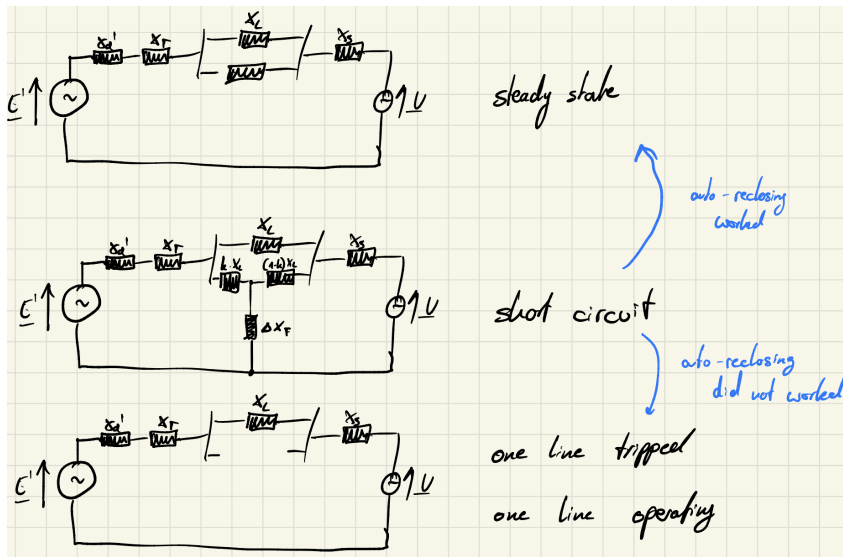 X_L
X_d' X_T X_S
E' ~ U
steady state
auto-reclosing
worked
X_L
X_d' X_T X_S
k·X_L (1-k)X_L
E' ~ U
short circuit
ΔX_F
auto-reclosing
did not worked
X_L
X_d' X_T X_S
one line tripped
E' ~ U
one line operating